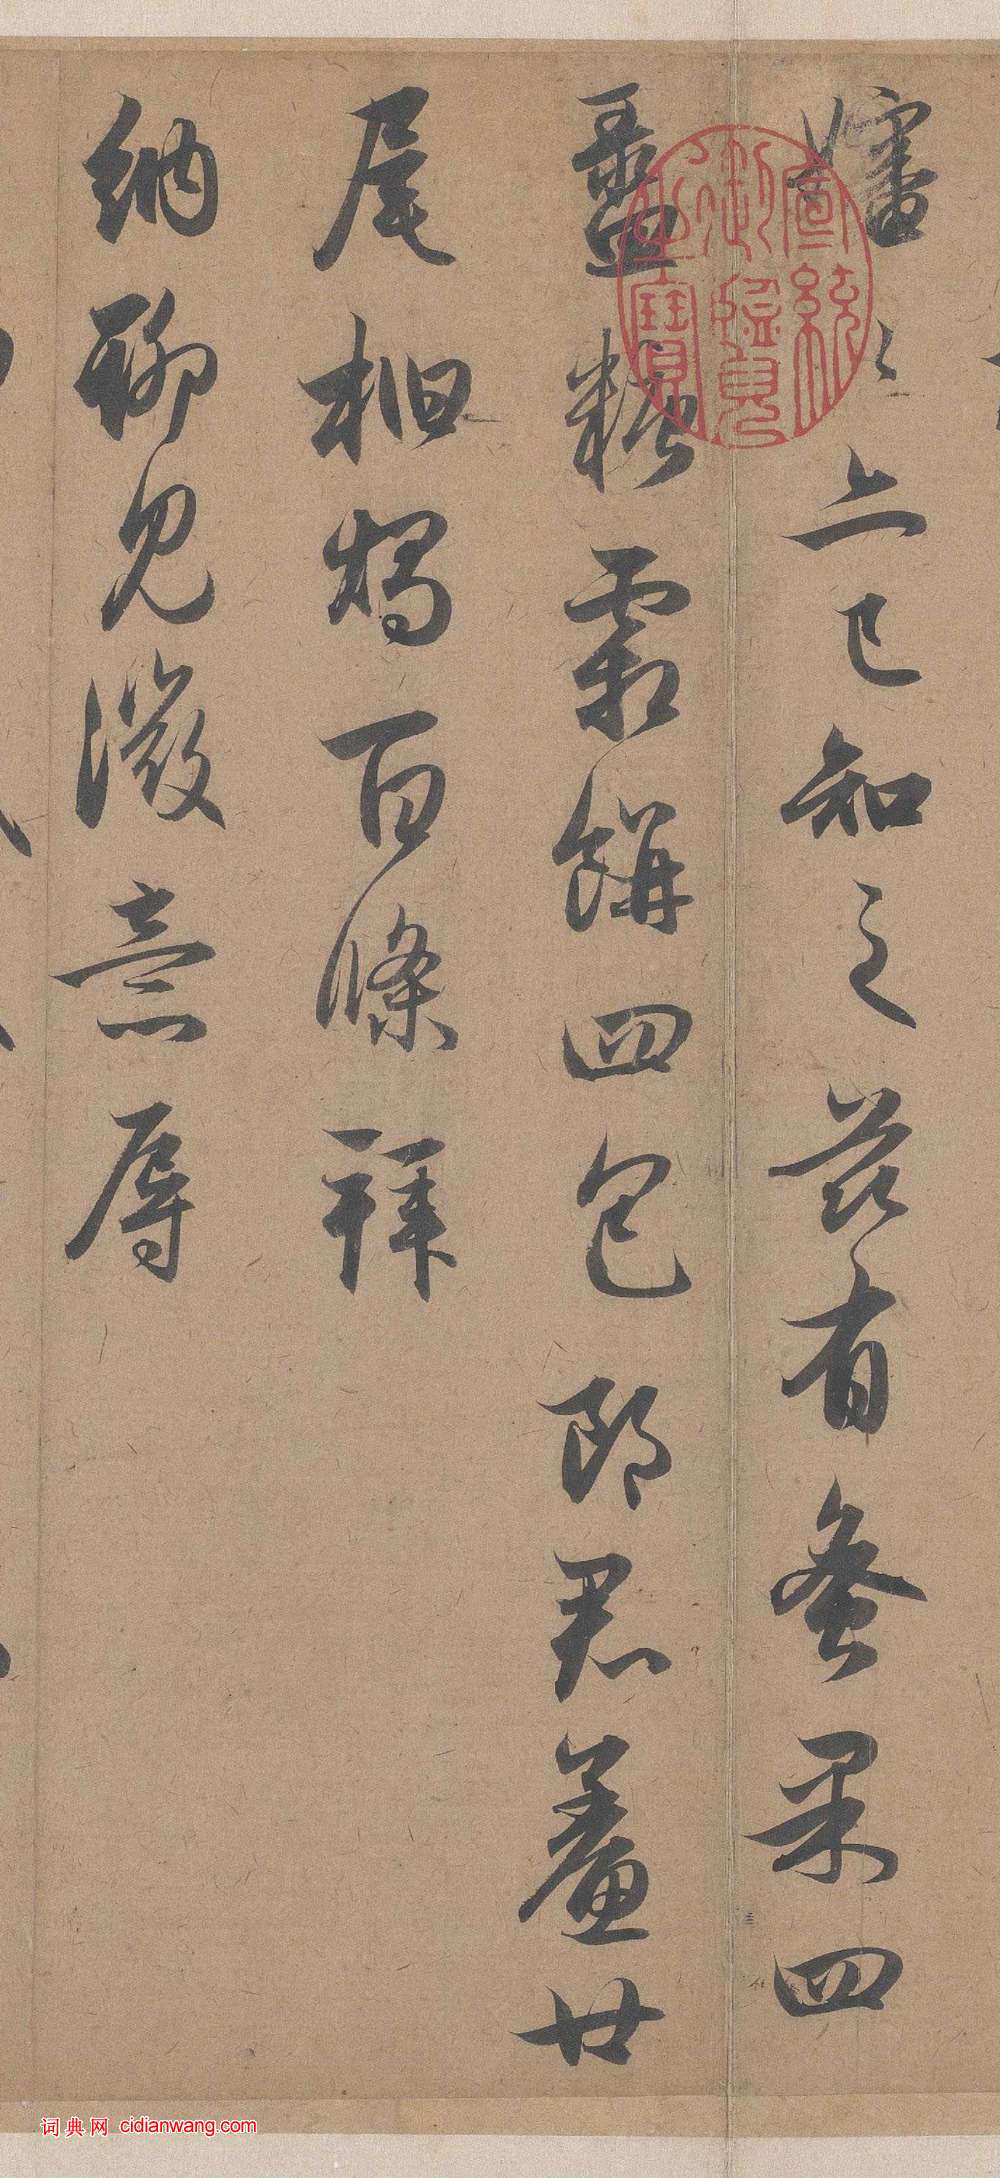 嬸〻上已知之茲有蜜果四
盝糖霜餅四包郎君鮝廿
尾桕燭百條拜
納聊見微意辱
宣統御覽之寶
词典网 cidianwang.com